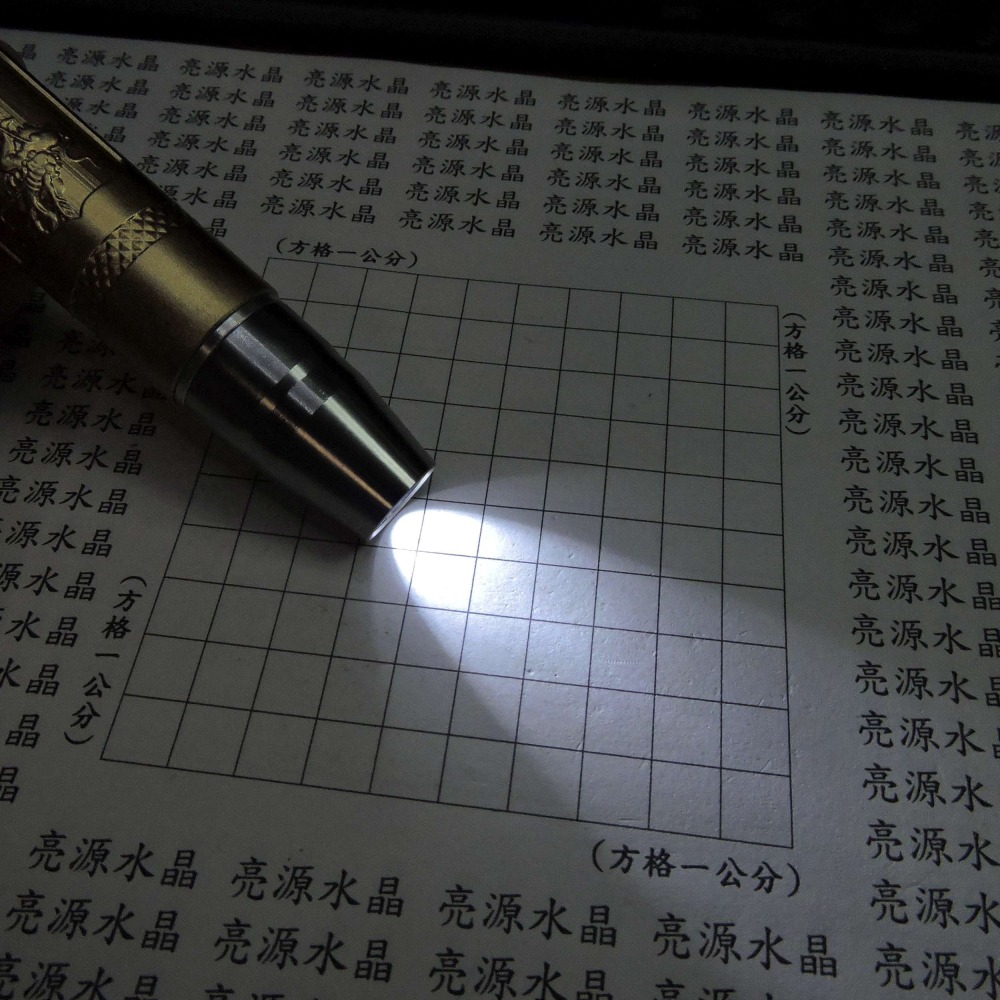 亮源水晶 亮源水晶 亮源水晶 亮源水晶 亮源水晶 亮源水晶 亮源水晶 亮源
亮源水晶 亮源水晶 亮源水晶 亮源水晶 亮源水晶 亮源水晶 亮源水晶
源水晶 亮源水晶 亮源水晶 亮源水晶 亮源水晶 亮源水晶 亮源水晶
晶 亮源水晶 亮源水晶 亮源水晶 亮源水晶 亮源水晶 亮源水晶
亮源水晶 亮源水晶 亮源水晶 亮源水晶 亮源水晶 亮源水晶
源水晶 亮源水晶 亮源水晶 亮源水晶 亮源水晶 亮源水晶
晶
(方格一公分)
亮源水晶
亮源水晶
(方格一公分)
亮源水晶
亮源
亮源水晶
亮源水 亮源水晶
亮源水晶 亮源水晶
亮源水晶 亮源水晶
亮源水晶 亮源水晶
源水晶 亮源水晶
源水晶 亮源水晶
(方格一公分)
水晶 亮源水晶
水晶 亮源水晶
晶 亮源水
晶 亮源水
(方格一公分)
亮源水晶 亮源水晶 亮源水晶 亮源水晶 亮源水
亮源水晶 亮源水晶 亮源水晶 亮源水
亮源水晶 亮源水晶 亮源水